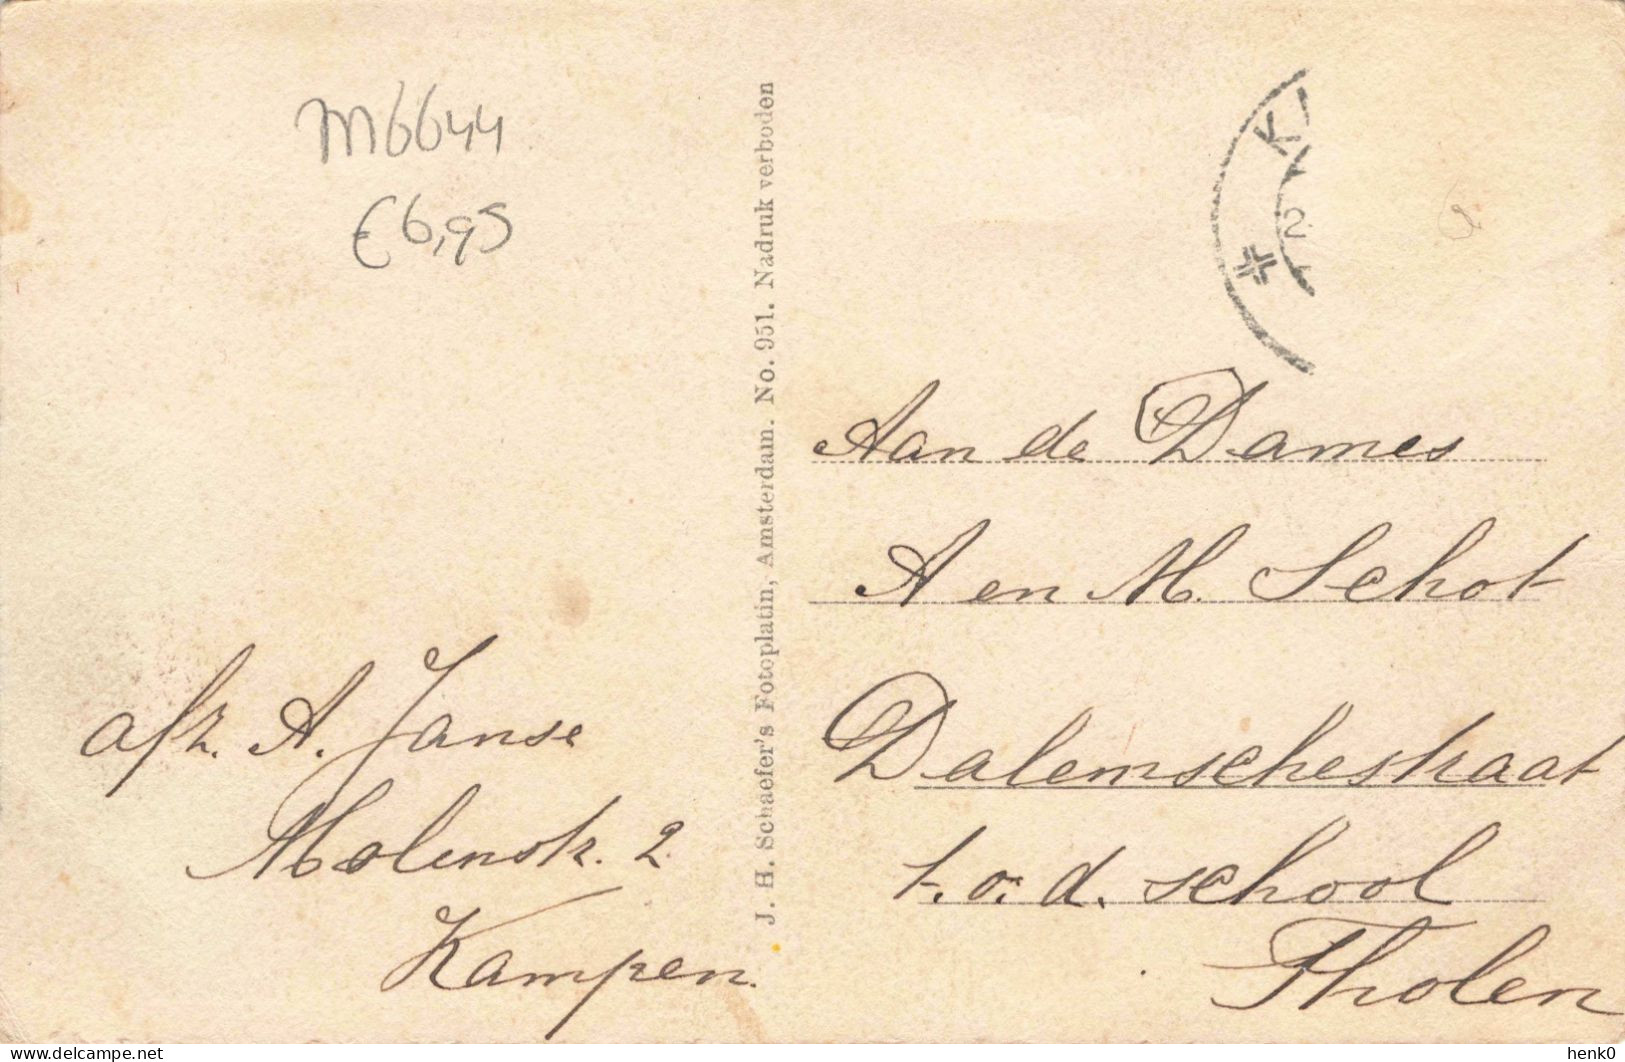 M6644
€6,95
afz. A. Janse
Molenstr. 2.
Kampen.
J. H. Schaefer's Fotoplatin, Amsterdam. No. 951. Nadruk verboden
K
2
Aan de Dames
A en M. Schot
Dalemschestraat
t.o.d. school
Tholen
www.delcampe.net
henk0